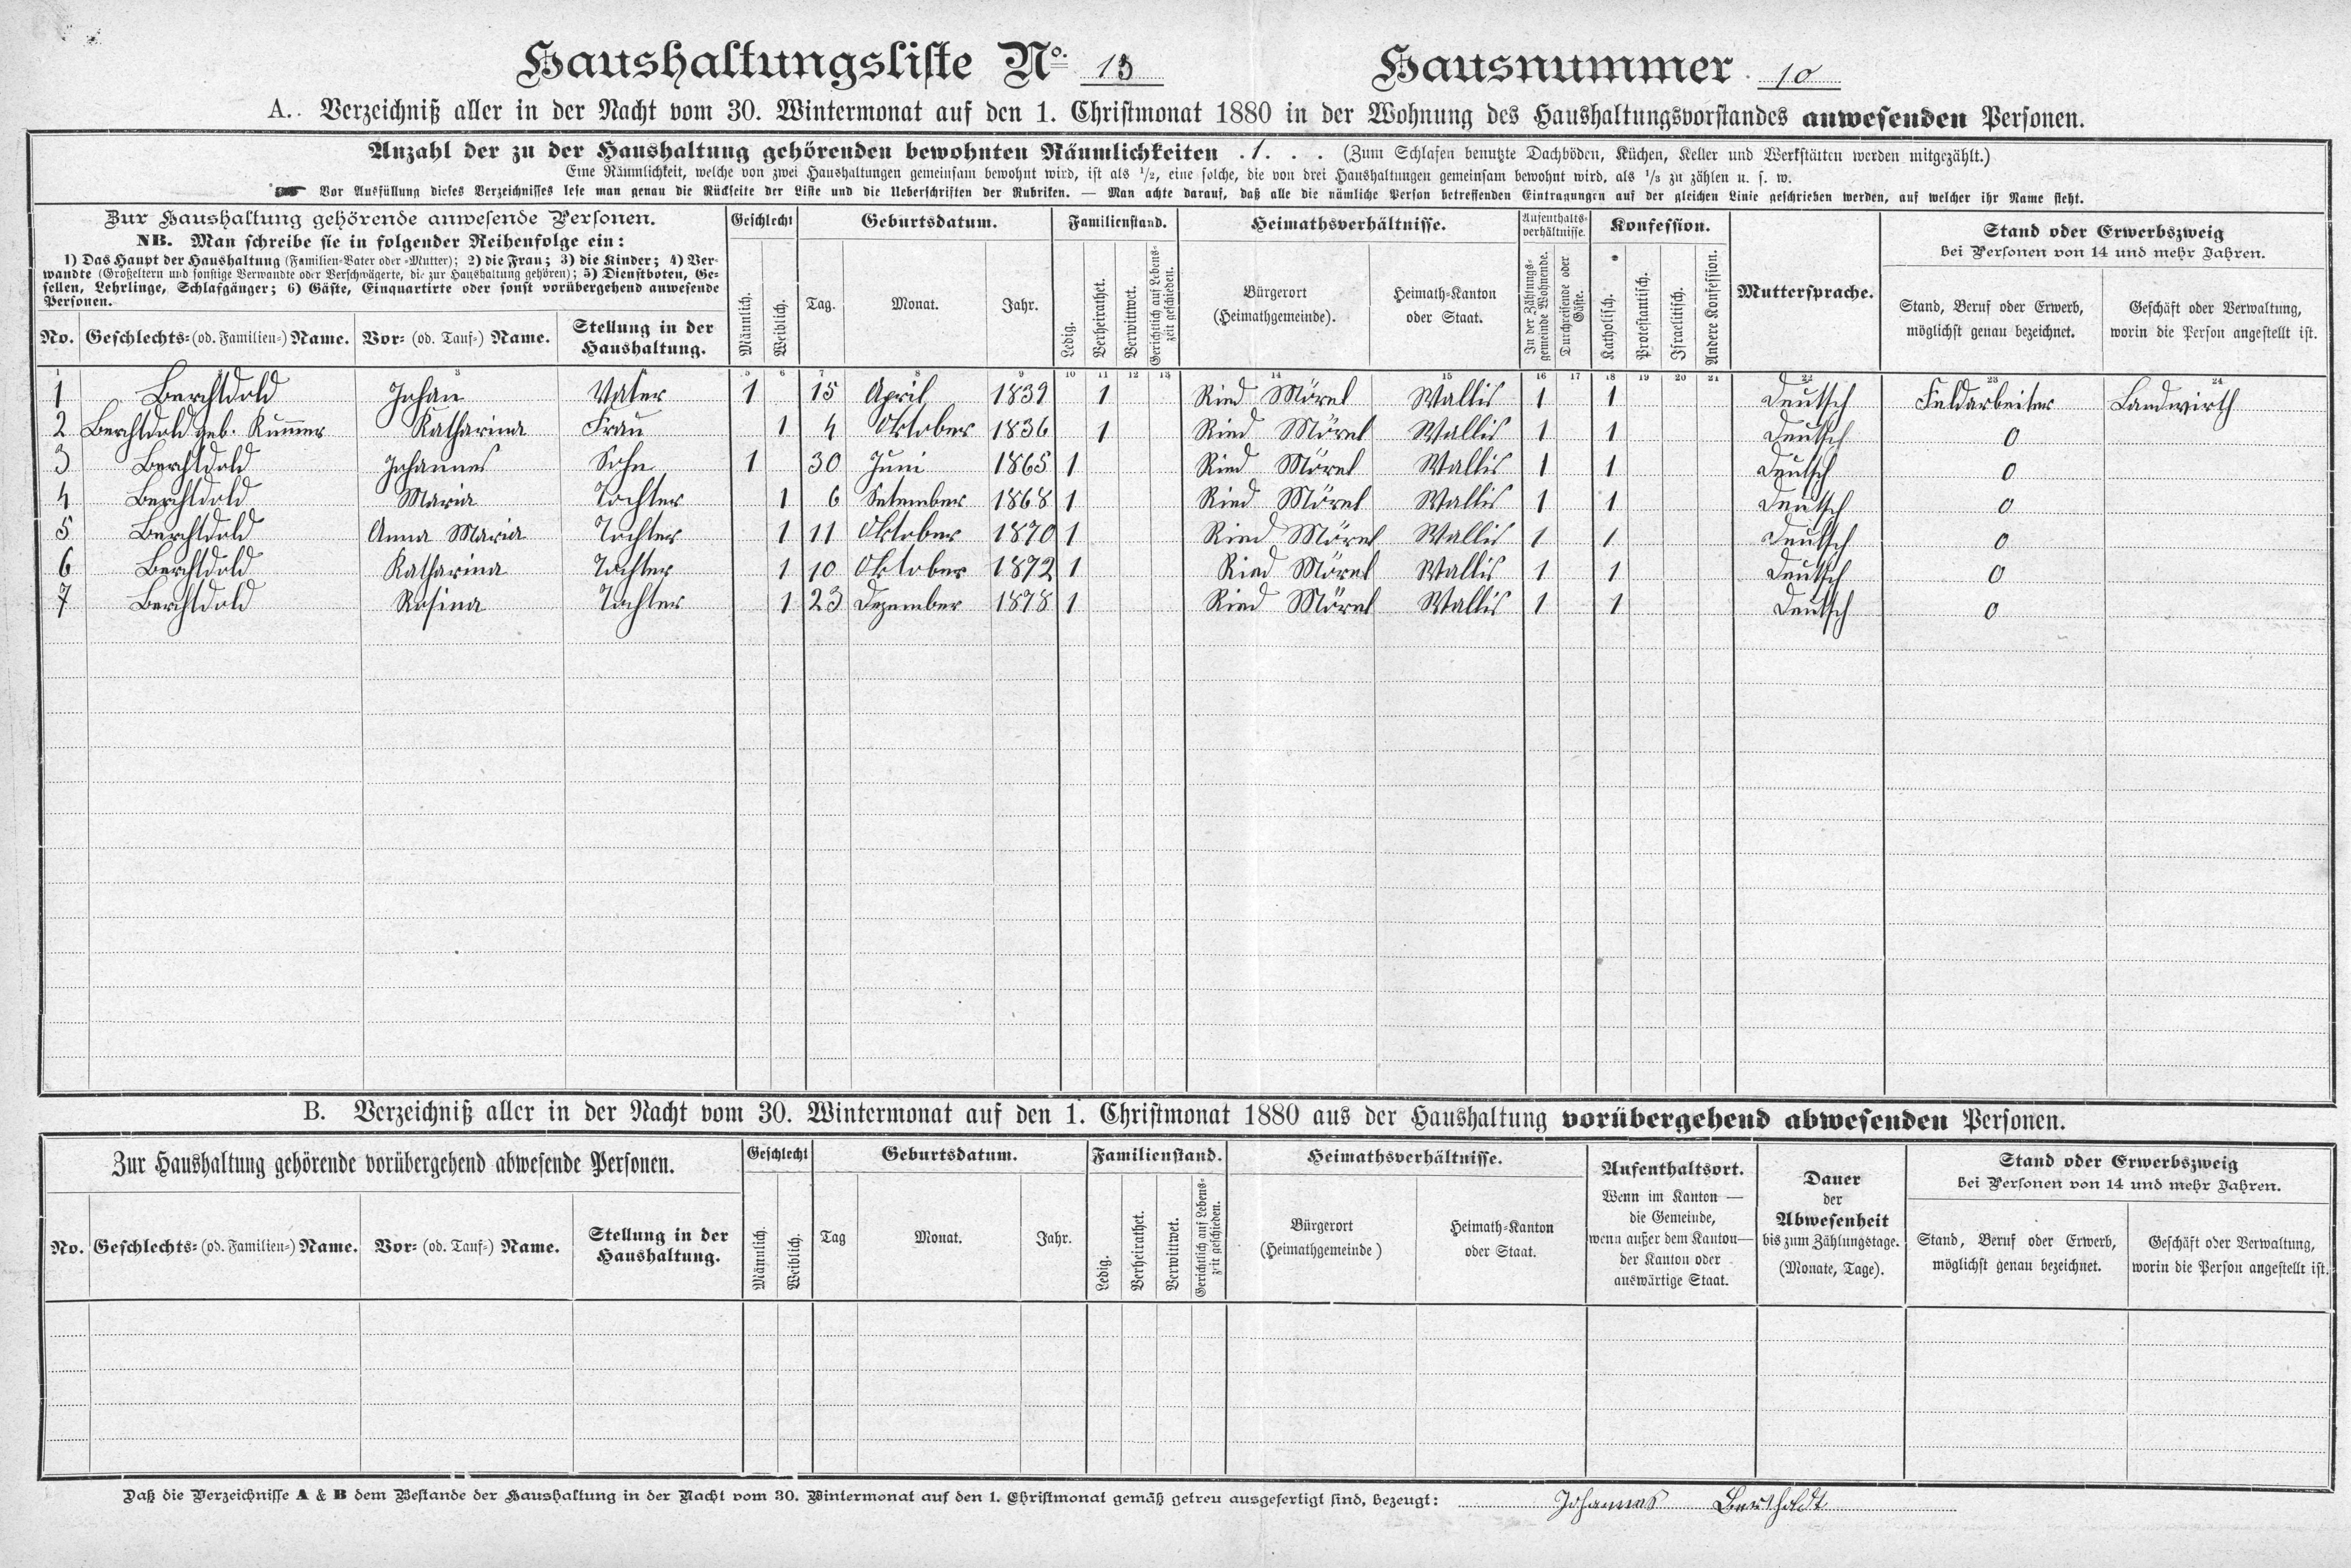 Haushaltungsliste No. 13 Hausnummer 10
A. Verzeichniß aller in der Nacht vom 30. Wintermonat auf den 1. Christmonat 1880 in der Wohnung des Haushaltungsvorstandes anwesenden Personen.
Anzahl der zu der Haushaltung gehörenden bewohnten Räumlichkeiten . 1 . . . (Zum Schlafen benutzte Dachböden, Küchen, Keller und Werkstätten werden mitgezählt.)
Eine Räumlichkeit, welche von zwei Haushaltungen gemeinsam bewohnt wird, ist als 1/2, eine solche, die von drei Haushaltungen gemeinsam bewohnt wird, als 1/3 zu zählen u. s. w.
Vor Ausfüllung dieses Verzeichnisses lese man genau die Rückseite der Liste und die Ueberschriften der Rubriken. — Man achte darauf, daß alle die nämliche Person betreffenden Eintragungen auf der gleichen Linie geschrieben werden, auf welcher ihr Name steht.
Zur Haushaltung gehörende anwesende Personen.
NB. Man schreibe sie in folgender Reihenfolge ein:
1) Das Haupt der Haushaltung (Familien-Vater oder -Mutter); 2) die Frau; 3) die Kinder; 4) Ver-
wandte (Großeltern und sonstige Verwandte oder Verschwägerte, die zur Haushaltung gehören); 5) Dienstboten, Ge-
sellen, Lehrlinge, Schlafgänger; 6) Gäste, Einquartirte oder sonst vorübergehend anwesende
Personen.
No. Geschlechts- (od. Familien-) Name. Vor- (od. Tauf-) Name. Stellung in der Haushaltung.
Geschlecht
Männlich. Weiblich.
Geburtsdatum.
Tag. Monat. Jahr.
Familienstand.
Ledig. Verheirathet. Verwittwet. Gerichtlich auf Lebenszeit geschieden.
Heimathsverhältnisse.
Bürgerort (Heimathgemeinde). Heimath-Kanton oder Staat.
Aufenthalts-verhältnisse.
In der Zählungs-gemeinde Wohnende. Durchreisende oder Gäste.
Konfession.
Katholisch. Protestantisch. Israelitisch. Andere Konfession.
Muttersprache.
Stand oder Erwerbszweig
bei Personen von 14 und mehr Jahren.
Stand, Beruf oder Erwerb, möglichst genau bezeichnet. Geschäft oder Verwaltung, worin die Person angestellt ist.
1 3 5 6 7 8 9 10 11 12 13 14 15 16 17 18 19 20 21 22 23 24
1 Berchtdold Johan Vater 1 15 April 1832 1 Ried Mörel Wallis 1 1 Deutsch Feldarbeiter Landwirth
2 Berchtdold geb. Kummer Katharina Frau 1 4 Oktober 1836 1 Ried Mörel Wallis 1 1 Deutsch 0
3 Berchtdold Johannes Sohn 1 30 Juni 1865 1 Ried Mörel Wallis 1 1 Deutsch 0
4 Berchtdold Maria Tochter 1 6 Setember 1868 1 Ried Mörel Wallis 1 1 Deutsch 0
5 Berchtdold Anna Maria Tochter 1 11 Oktober 1870 1 Ried Mörel Wallis 1 1 Deutsch 0
6 Berchtdold Katharina Tochter 1 10 Oktober 1872 1 Ried Mörel Wallis 1 1 Deutsch 0
7 Berchtdold Rosina Tochter 1 23 Dezember 1878 1 Ried Mörel Wallis 1 1 Deutsch 0
B. Verzeichniß aller in der Nacht vom 30. Wintermonat auf den 1. Christmonat 1880 aus der Haushaltung vorübergehend abwesenden Personen.
Zur Haushaltung gehörende vorübergehend abwesende Personen.
No. Geschlechts- (od. Familien-) Name. Vor- (od. Tauf-) Name. Stellung in der Haushaltung.
Geschlecht
Männlich. Weiblich.
Geburtsdatum.
Tag Monat. Jahr.
Familienstand.
Ledig. Verheirathet. Verwittwet. Gerichtlich auf Lebens-zeit geschieden.
Heimathsverhältnisse.
Bürgerort (Heimathgemeinde) Heimath-Kanton oder Staat.
Aufenthaltsort.
Wenn im Kanton —
die Gemeinde,
wenn außer dem Kanton —
der Kanton oder
auswärtige Staat.
Dauer
der
Abwesenheit
bis zum Zählungstage.
(Monate, Tage).
Stand oder Erwerbszweig
bei Personen von 14 und mehr Jahren.
Stand, Beruf oder Erwerb, möglichst genau bezeichnet. Geschäft oder Verwaltung, worin die Person angestellt ist.
Daß die Verzeichnisse A & B dem Bestande der Haushaltung in der Nacht vom 30. Wintermonat auf den 1. Christmonat gemäß getreu ausgefertigt sind, bezeugt: Johannes Bertholdt